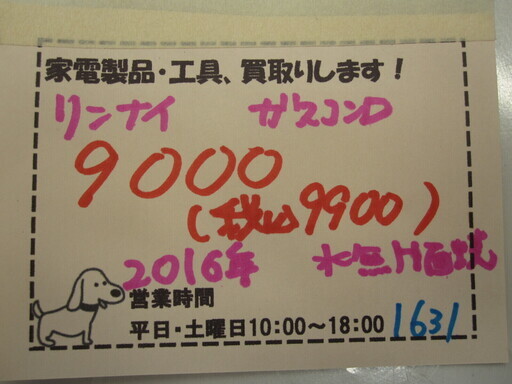 家電製品・工具、買取りします！
リンナイ ガスコンロ
9000
(税込9900)
2016年 水無片面焼
営業時間
平日・土曜日10:00～18:00 1631